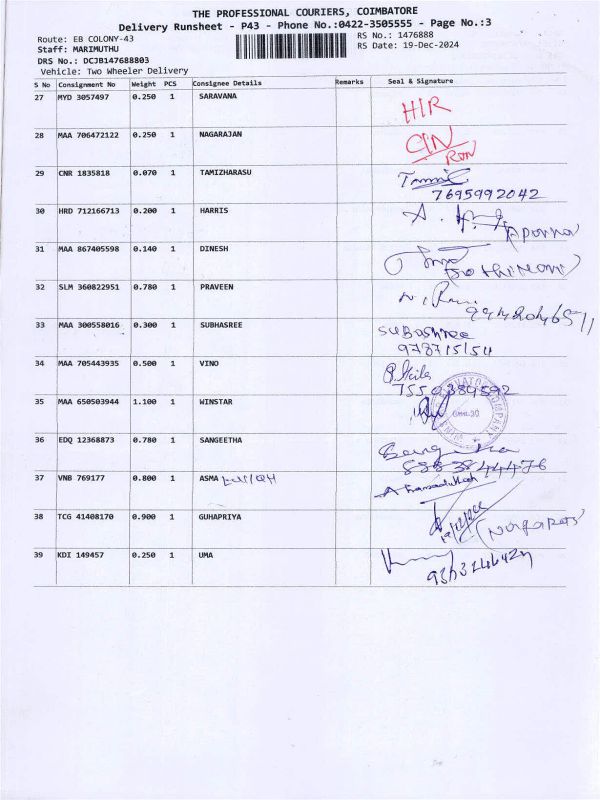 THE PROFESSIONAL COURIERS, COIMBATORE
Delivery Runsheet - P43 - Phone No.:0422-3505555 - Page No.:3
Route: EB COLONY-43
RS No.: 1476888
Staff: MARIMUTHU
RS Date: 19-Dec-2024
DRS No.: DCJB147688803
Vehicle: Two Wheeler Delivery
S No Consignment No Weight PCS Consignee Details Remarks Seal & Signature
27 MYD 3057497 0.250 1 SARAVANA
HIR
28 MAA 706472122 0.250 1 NAGARAJAN
29 CNR 1835818 0.070 1 TAMIZHARASU
7695992042
30 HRD 712166713 0.200 1 HARRIS
31 MAA 867405598 0.140 1 DINESH
32 SLM 360822951 0.780 1 PRAVEEN
33 MAA 300558016 0.300 1 SUBHASREE
SUBashree
34 MAA 705443935 0.500 1 VINO
7550389592
35 MAA 650503944 1.100 1 WINSTAR
36 EDQ 12368873 0.780 1 SANGEETHA
Sangeetha
8883844476
37 VNB 769177 0.800 1 ASMA
38 TCG 41408170 0.900 1 GUHAPRIYA
39 KDI 149457 0.250 1 UMA